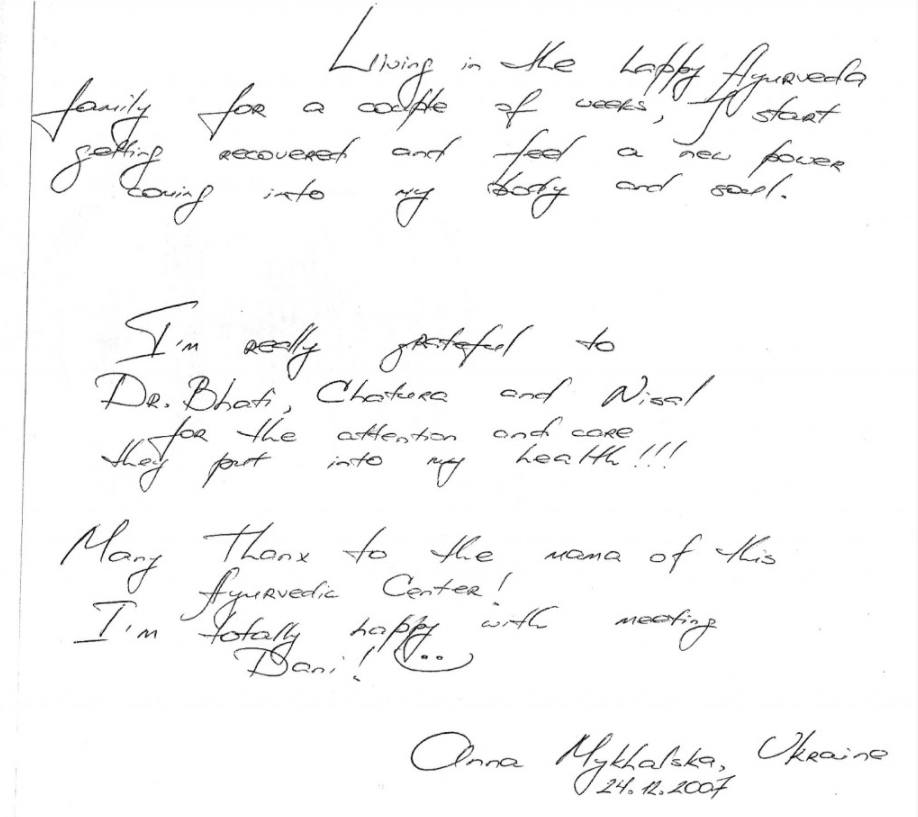 Living in the happy Ayurveda
family for a couple of weeks, I start
getting recovered and feel a new power
coming into my body and soul.
I'm really grateful to
Dr. Bhati, Chatura and Nisal
for the attention and care
they put into my health!!!
Many Thanx to the mama of this
Ayurvedic Center!
I'm totally happy with meeting
Dani!
Anna Mykhalska, Ukraine
24.12.2007